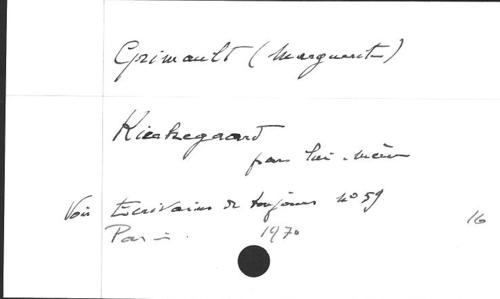 Grimault (Marguerite)
Kierkegaard
par lui-même
Voir Ecrivains de toujours n° 59
Paris. 1970
16